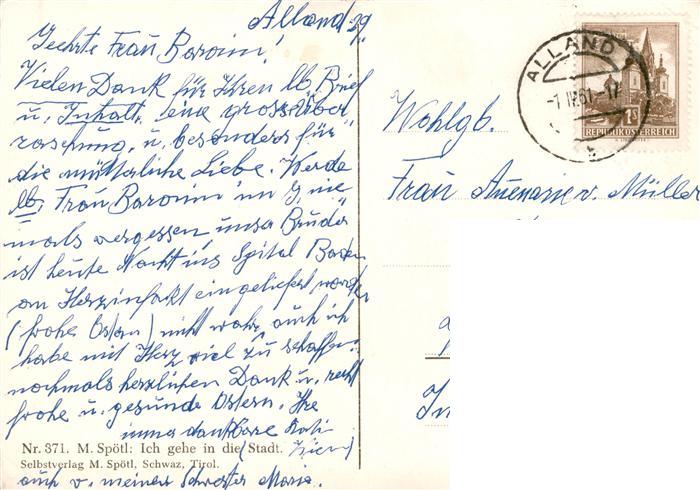 Alland, 29.
Geehrte Frau Baronin!
Vielen Dank für Ihren lb. Brief
u. Inhalt, eine grosse Über
raschung, u. besonders für
die mütterliche Liebe. Werde
lb. Frau Baronin im nie
mals vergessen unser Bruder
ist heute Nacht ins Spital Baden
an Herzinfakt eingeliefert worden
(frohe Ostern) nicht wahr, auch ich
habe mit Herz viel zu schaffen.
nochmals herzlichen Dank u. recht
frohe u. gesunde Ostern. Ihre
immer dankbare
Nr. 371. M. Spötl: Ich gehe in die Stadt.
Selbstverlag M. Spötl, Schwaz, Tirol.
auch v. meiner Schwester Maria.
ALLAND
1S
REPUBLIK ÖSTERREICH
Wohlgb.
Frau v. Müller